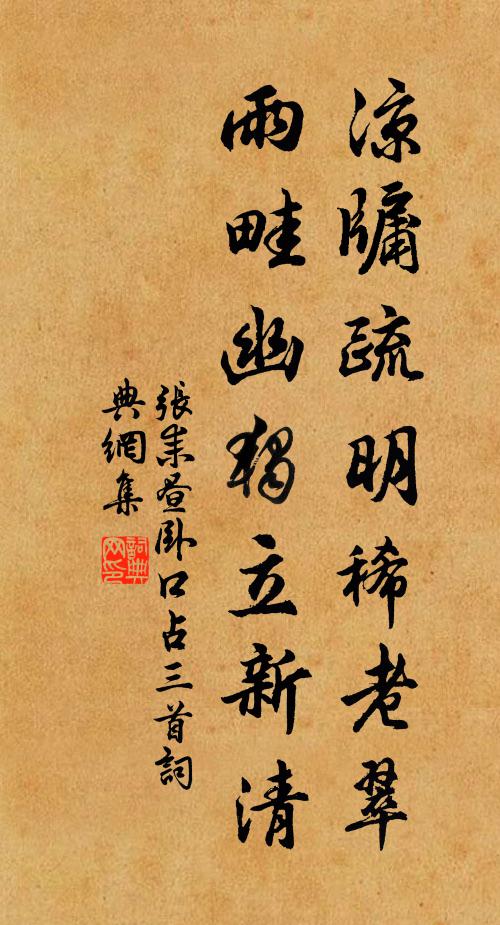 涼牖疏明稀老翠
雨畦幽獨立新清
張耒晝臥口占三首詞
典網集
詞典
网印